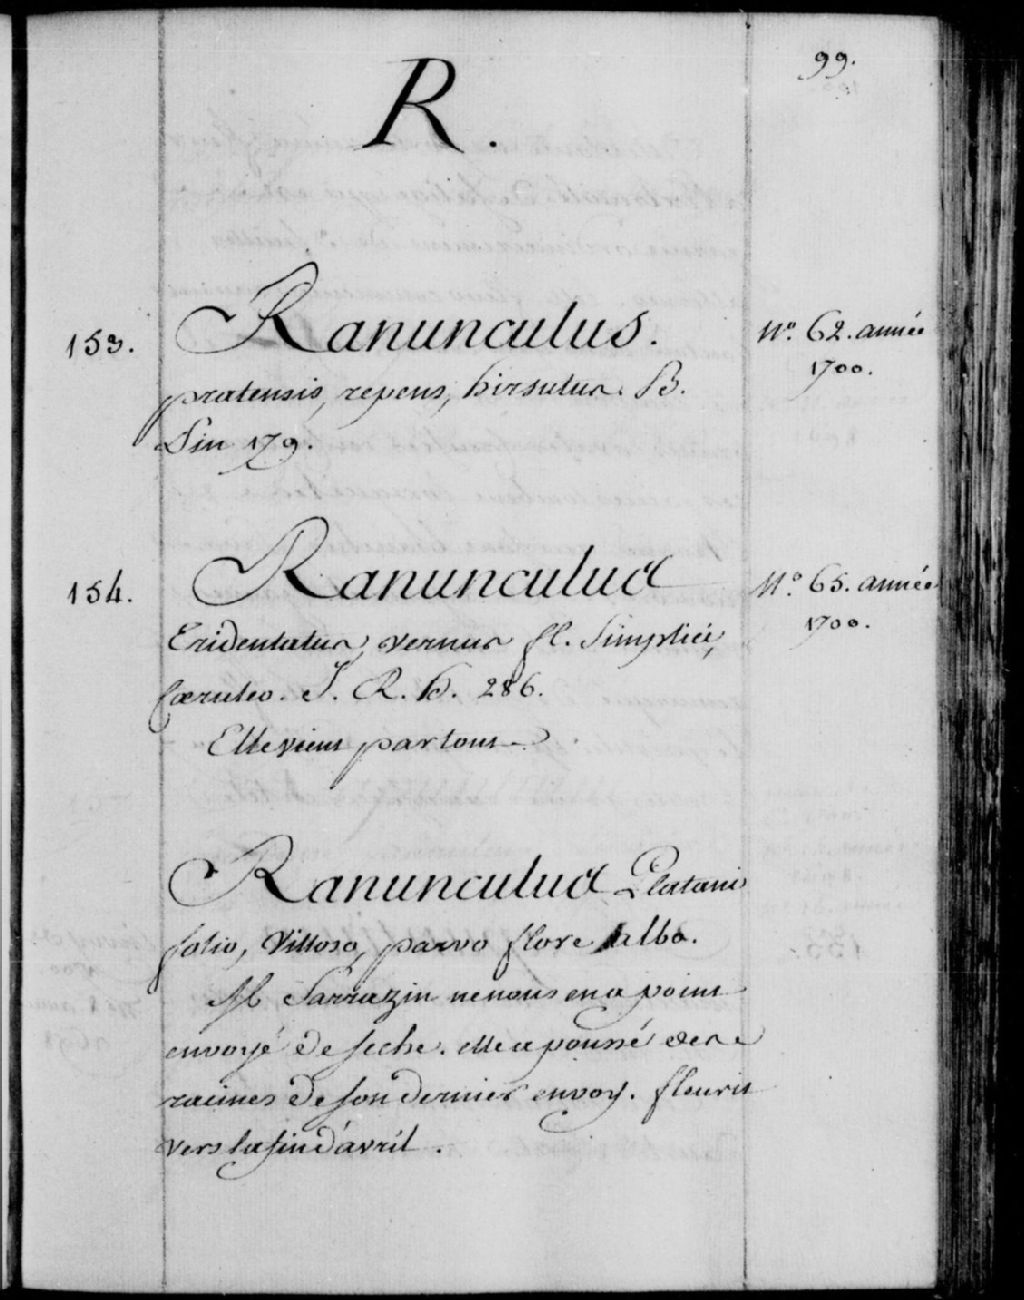 99.
R.
153.
Ranunculus.
No. 62. année
1700.
pratensis, repens, hirsutus B.
Pin 179.
154.
Ranunculus
No. 65. année
1700.
Tridentatus, vernus fl. Simplici,
Cæruleo. I. R. h. 286.
Elle vient partout
Ranunculus Platani
folio, Villoso, parvo flore albo.
Mr. Sarrazin ne nous en a point
envoyé de seche. elle a poussé des
racines de son dernier envoy. fleurit
vers la fin d'avril.